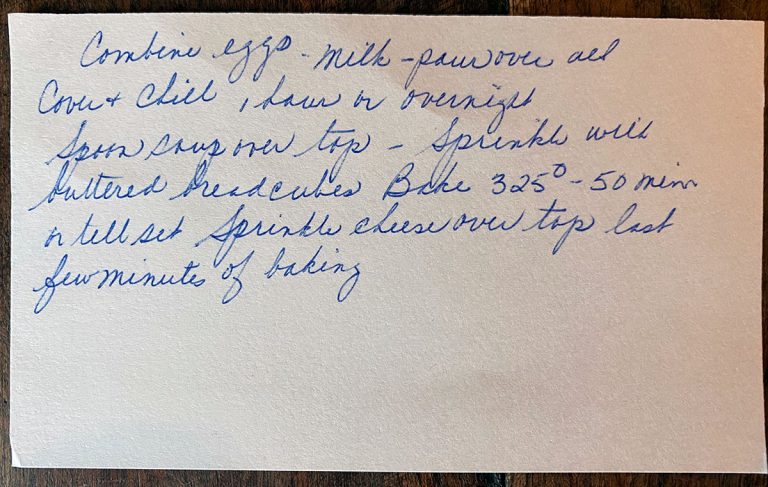 Combine eggs - milk - pour over all
Cover + Chill 1 hour or overnight
Spoon soup over top - Sprinkle with
buttered breadcubes Bake 325° - 50 min
or tell set Sprinkle cheese over top last
few minutes of baking